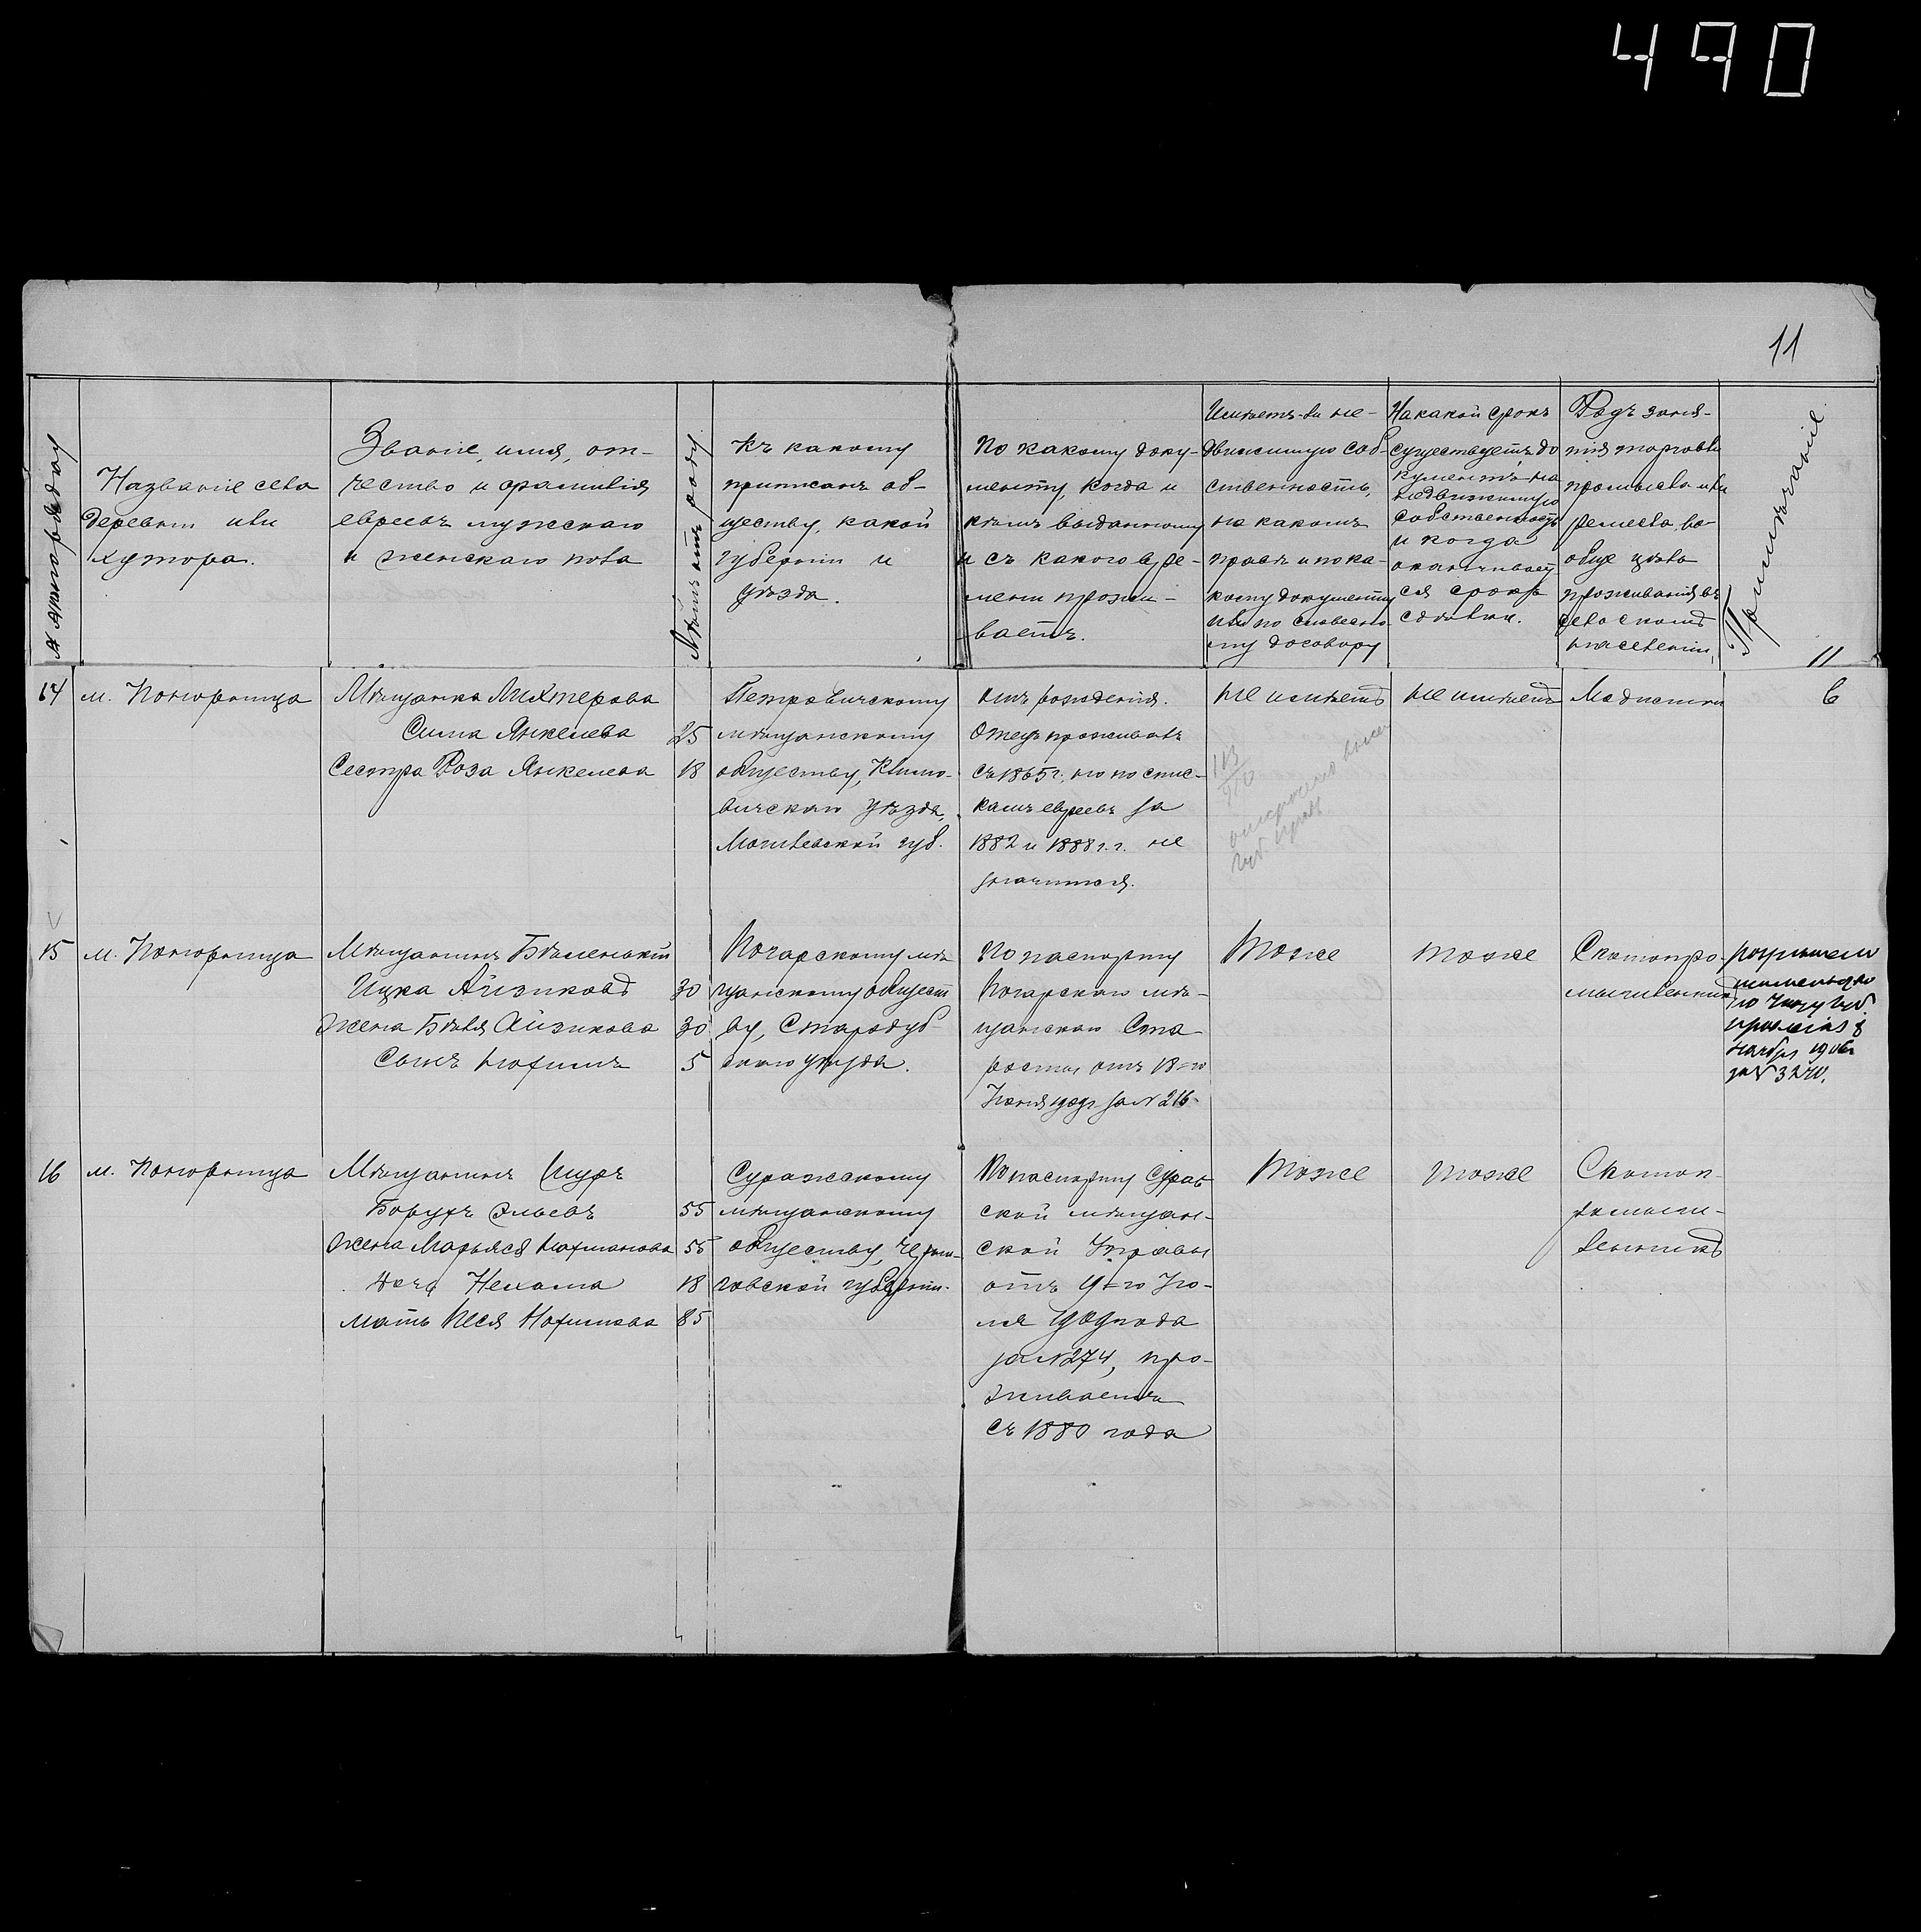 490
11
№ по порядку
Названіе села
деревни или
хутора.
Званіе, имя, от-
чество и фамилія
евреевъ мужскаго
и женскаго пола
Лѣтъ отъ роду
Къ какому
приписанъ об-
ществу, какой
губерніи и
уѣзда.
По какому доку-
менту, когда и
кѣмъ выданному
и съ какого вре-
мени прожи-
ваетъ.
Имѣетъ-ли не-
движимую соб-
ственность,
на какомъ
правѣ и по ка-
кому документу
или по словесно-
му договору
На какой срокъ
существуетъ до
кументъ на
недвижимую
собственность
и когда
оканчивает
ся срокъ
сдѣлки.
Родъ заня-
тія торговли
промысла или
ремесла, во-
обще цѣль
проживанія въ
сельскомъ
населеніи,
Примѣчаніе
11
14
м. Понорница
Мѣщанка Лихтерова
Сима Янкелева 25
Сестра Роза Янкелева 18
Петровичскому
мѣщанскому
обществу, Климо-
вичскаго уѣзда,
Могилевской губ.
отъ рожденія.
Отецъ проживалъ
съ 1865 г. но по спис-
камъ евреевъ за
1882 и 1888 г.г. не
значится.
не имѣетъ
не имѣетъ
Модистка
6
15
м. Понорница
Мѣщанинъ Бѣленькій
Ицка Айзиковъ 30
жена Бѣйля Айзикова 30
Сынъ Нохимъ 5
Погарскому мѣ
щанскому общест
ву, Стародуб-
скаго уѣзда.
По паспорту
Погарскаго мѣ-
щанскаго Ста-
росты отъ 18-го
Іюня 1909 г. за № 216
тоже
тоже
Скотопро
мышленникъ
по указу губ.
правленія 8
ноября 1906 г.
за № 3240.
16
м. Понорница
Мѣщанинъ Шуръ
Борухъ Эльевъ 55
жена Марьяся Нохманова 55
дочь Нехама 18
мать Песя Нохимова 85
Суражскому
мѣщанскому
обществу, Черни-
говской губерніи.
По паспорту Сураж
ской мѣщан-
ской Управы
отъ 9-го Ію-
ля 1909 года
за № 274, про-
живаетъ
съ 1880 года
тоже
тоже
Скотоп-
ромыш-
ленникъ